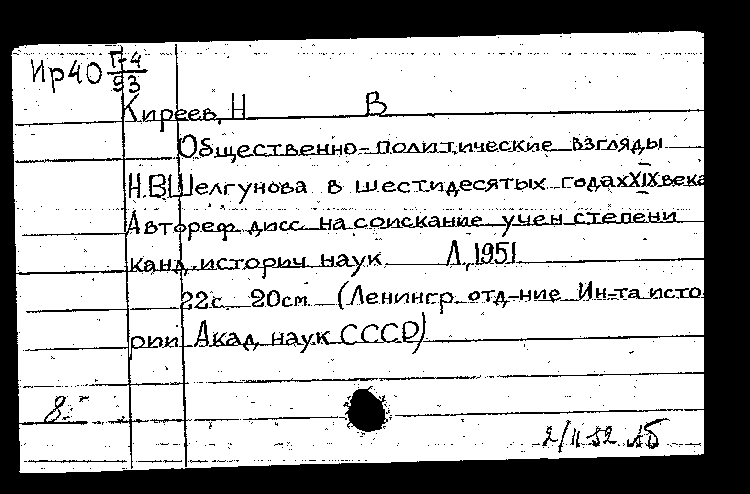 Ир40 Г-4
93
Киреев, Н В
Общественно-политические взгляды
Н.В.Шелгунова в шестидесятых годах XIX века
Автореф. дисс. на соискание учен степени
канд. историч наук Л, 1951.
22с. 20см (Ленингр. отд-ние Ин-та исто
рии Акад. наук СССР)
8.
2/II-52